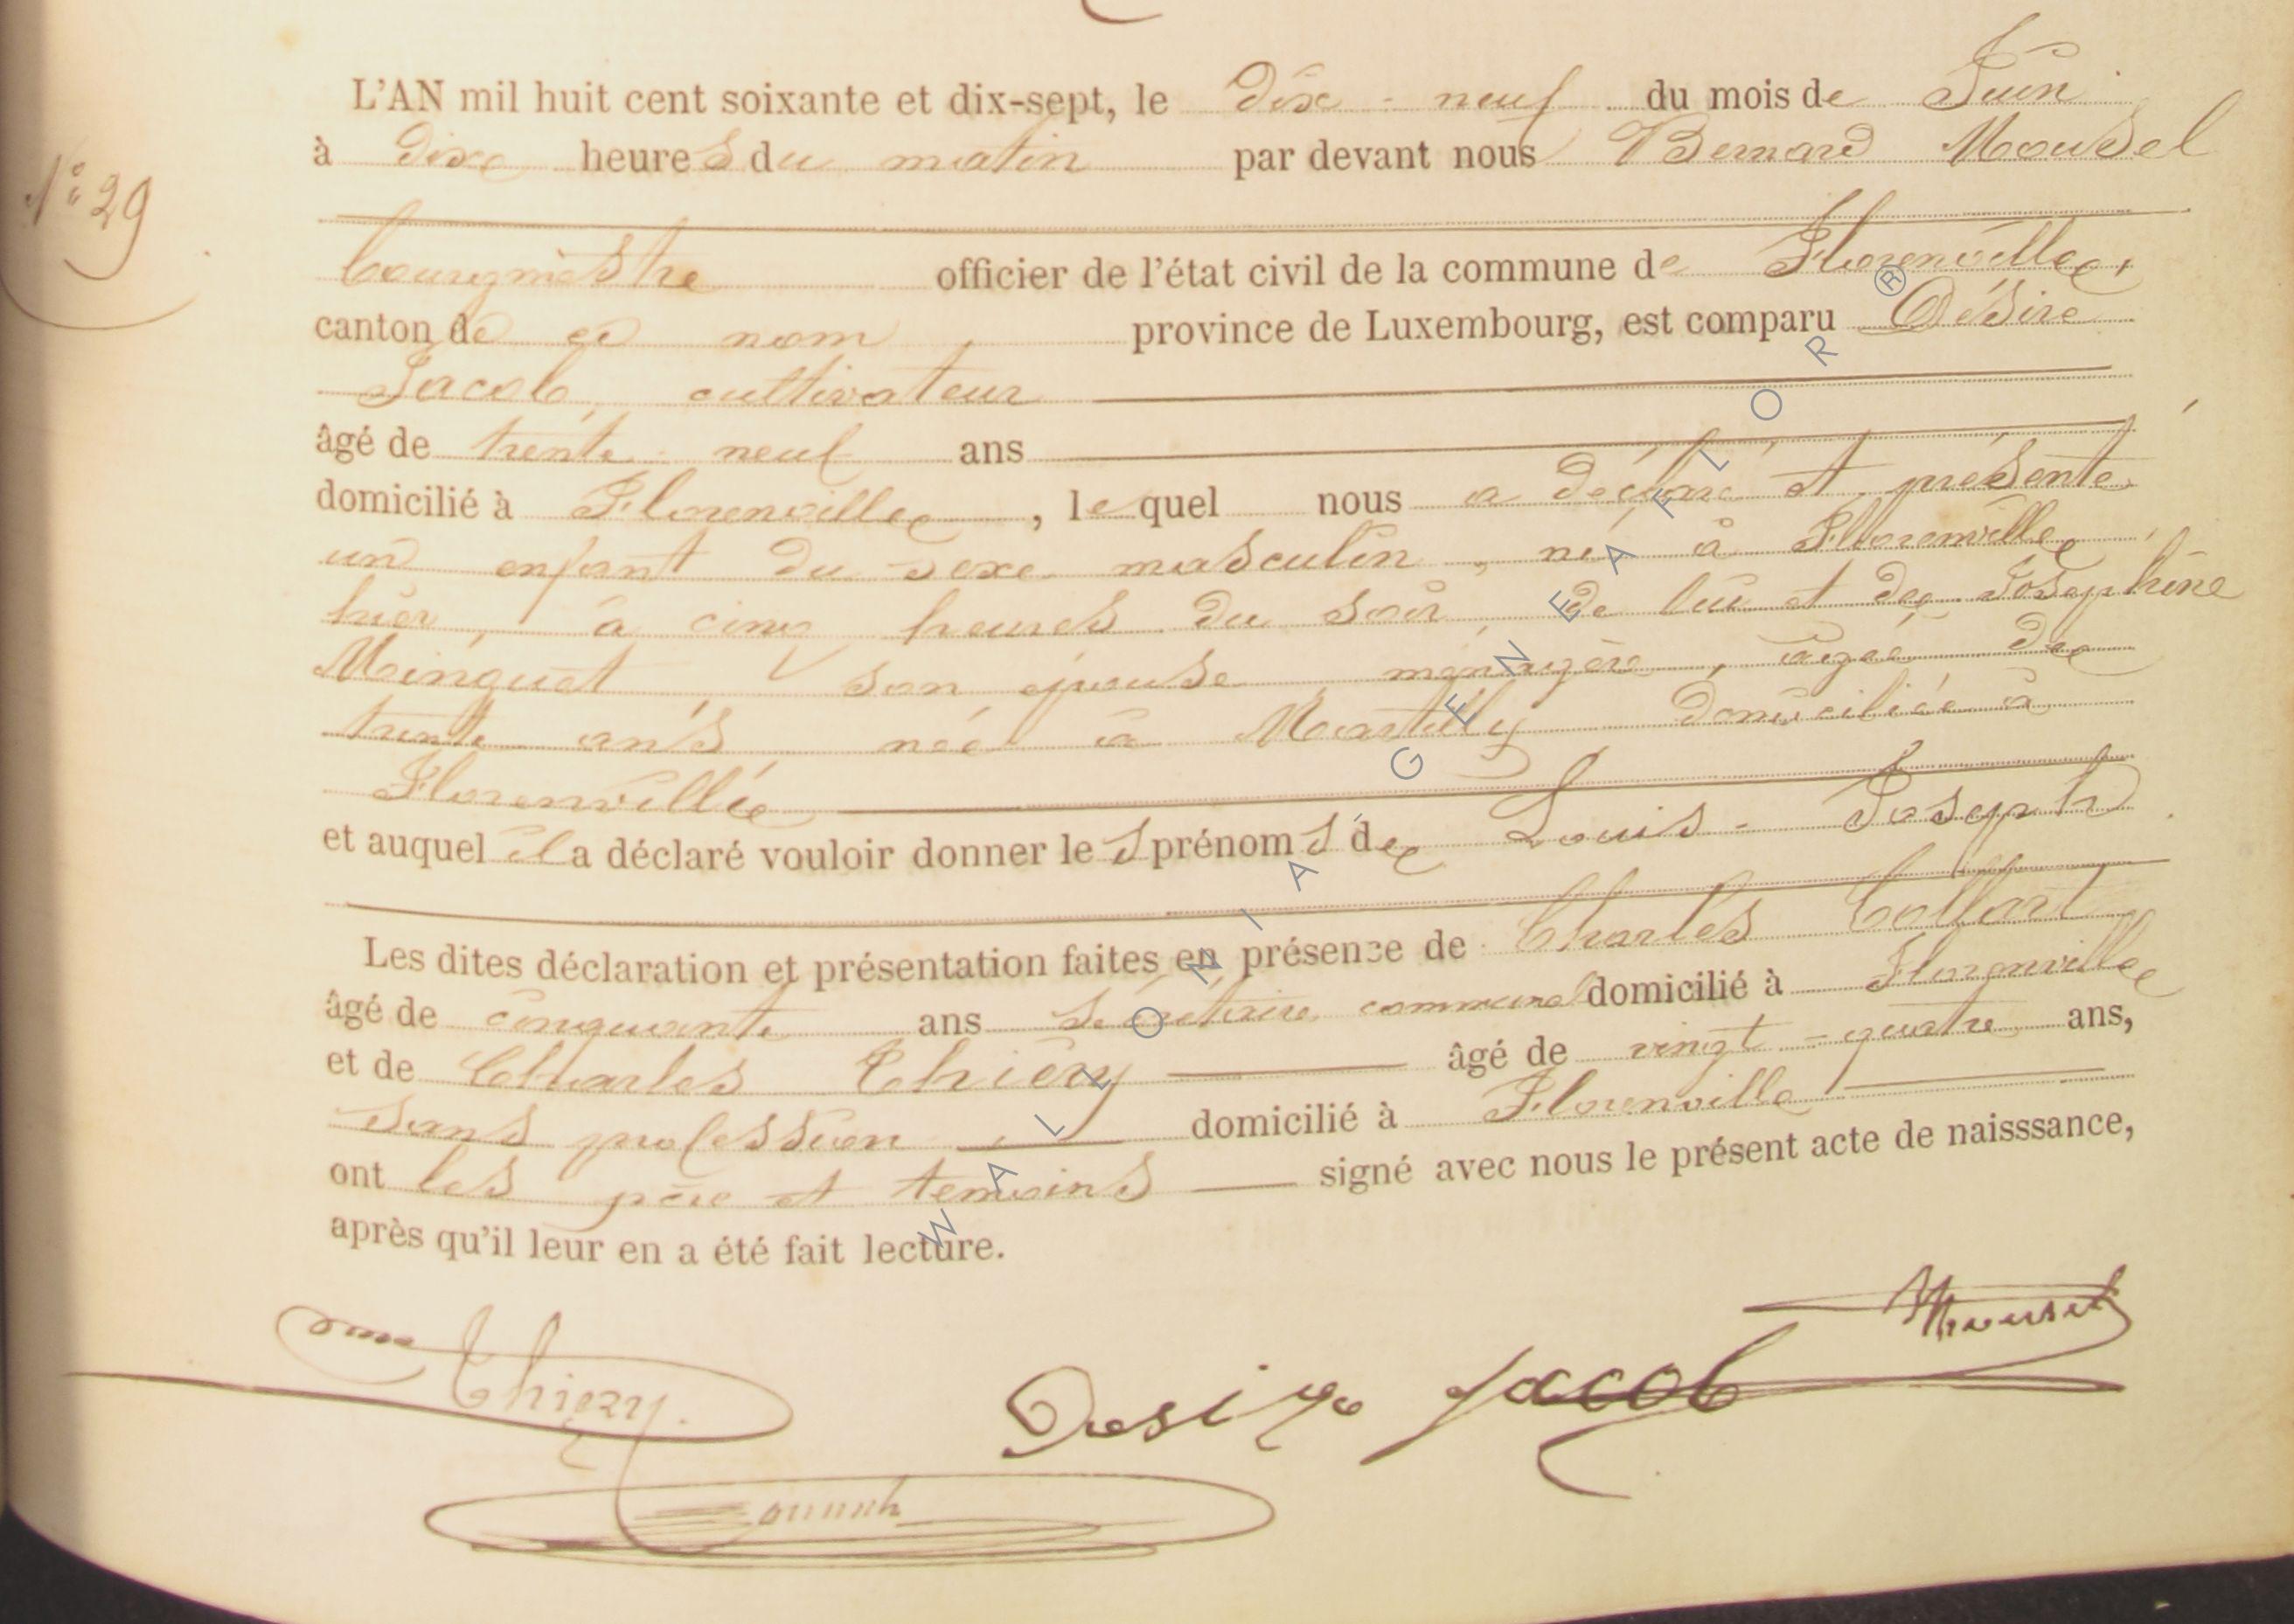 L'AN mil huit cent soixante et dix-sept, le dix-neuf du mois de Juin
à dix heures du matin par devant nous Bernard Mousel
N° 29
bourgmestre officier de l'état civil de la commune de Florenville,
canton de ce nom, province de Luxembourg, est comparu Désiré
Jacob, cultivateur
âgé de trente neuf ans
domicilié à Florenville, lequel nous a déclaré et présenté
un enfant du sexe masculin, né à Florenville,
hier, à cinq heures du soir, de lui et de Joséphine
Minguet, son épouse ménagère, âgée de
trente ans née à Martilly domiciliée à
Florenville
et auquel il a déclaré vouloir donner les prénoms de Louis-Joseph
Les dites déclaration et présentation faites en présence de Charles Collart
âgé de cinquante ans secrétaire communal domicilié à Florenville
et de Charles Thiéry âgé de vingt-quatre ans,
sans profession, domicilié à Florenville
ont les père et temoins signé avec nous le présent acte de naisssance,
après qu'il leur en a été fait lecture.
Mousel
Thiery.
Desire Jacob
WALLONIA GENEAFLOR®